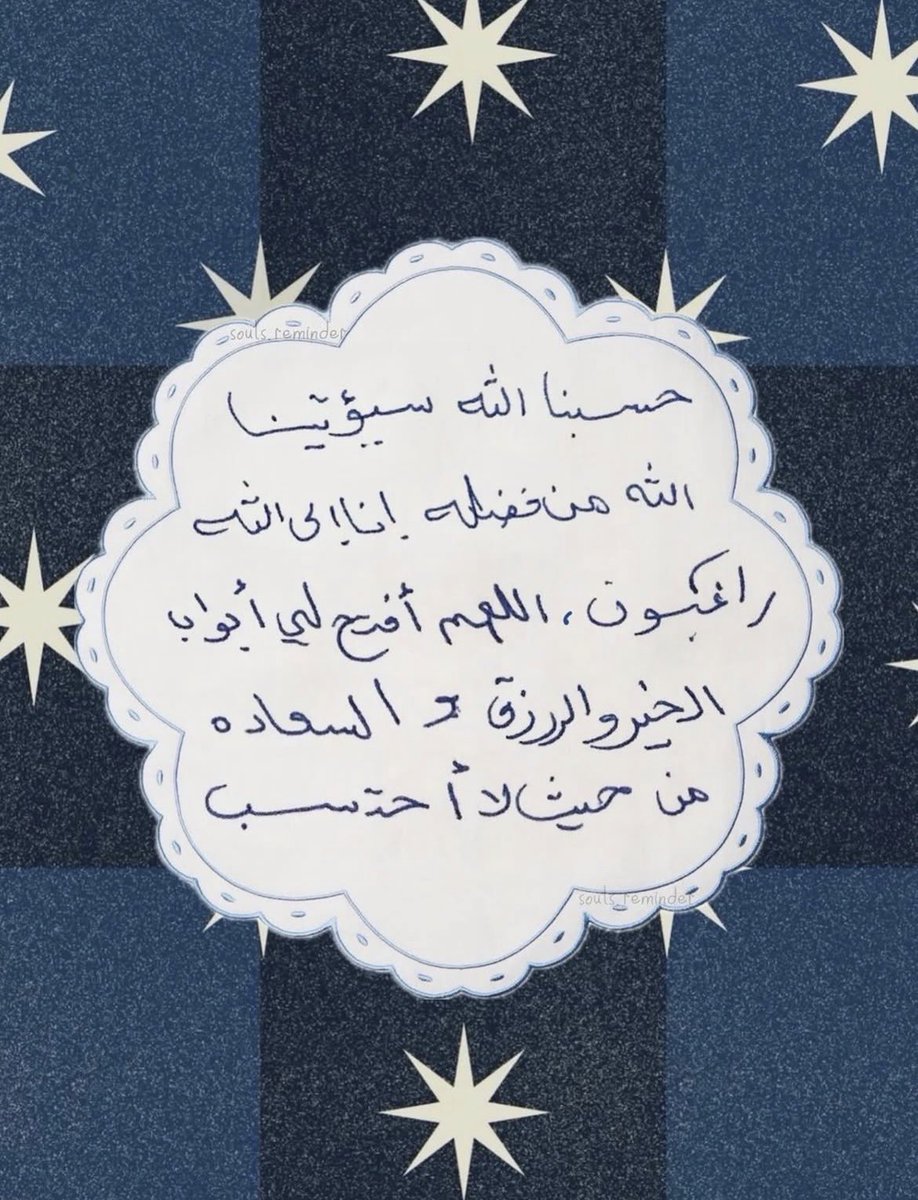 souls_reminder
حسبنا الله سيؤتينا
الله من فضله إنا إلى الله
راغبون، اللهم أفتح لي أبواب
الخير والرزق و السعاده
من حيث لا أحتسب
souls_reminder